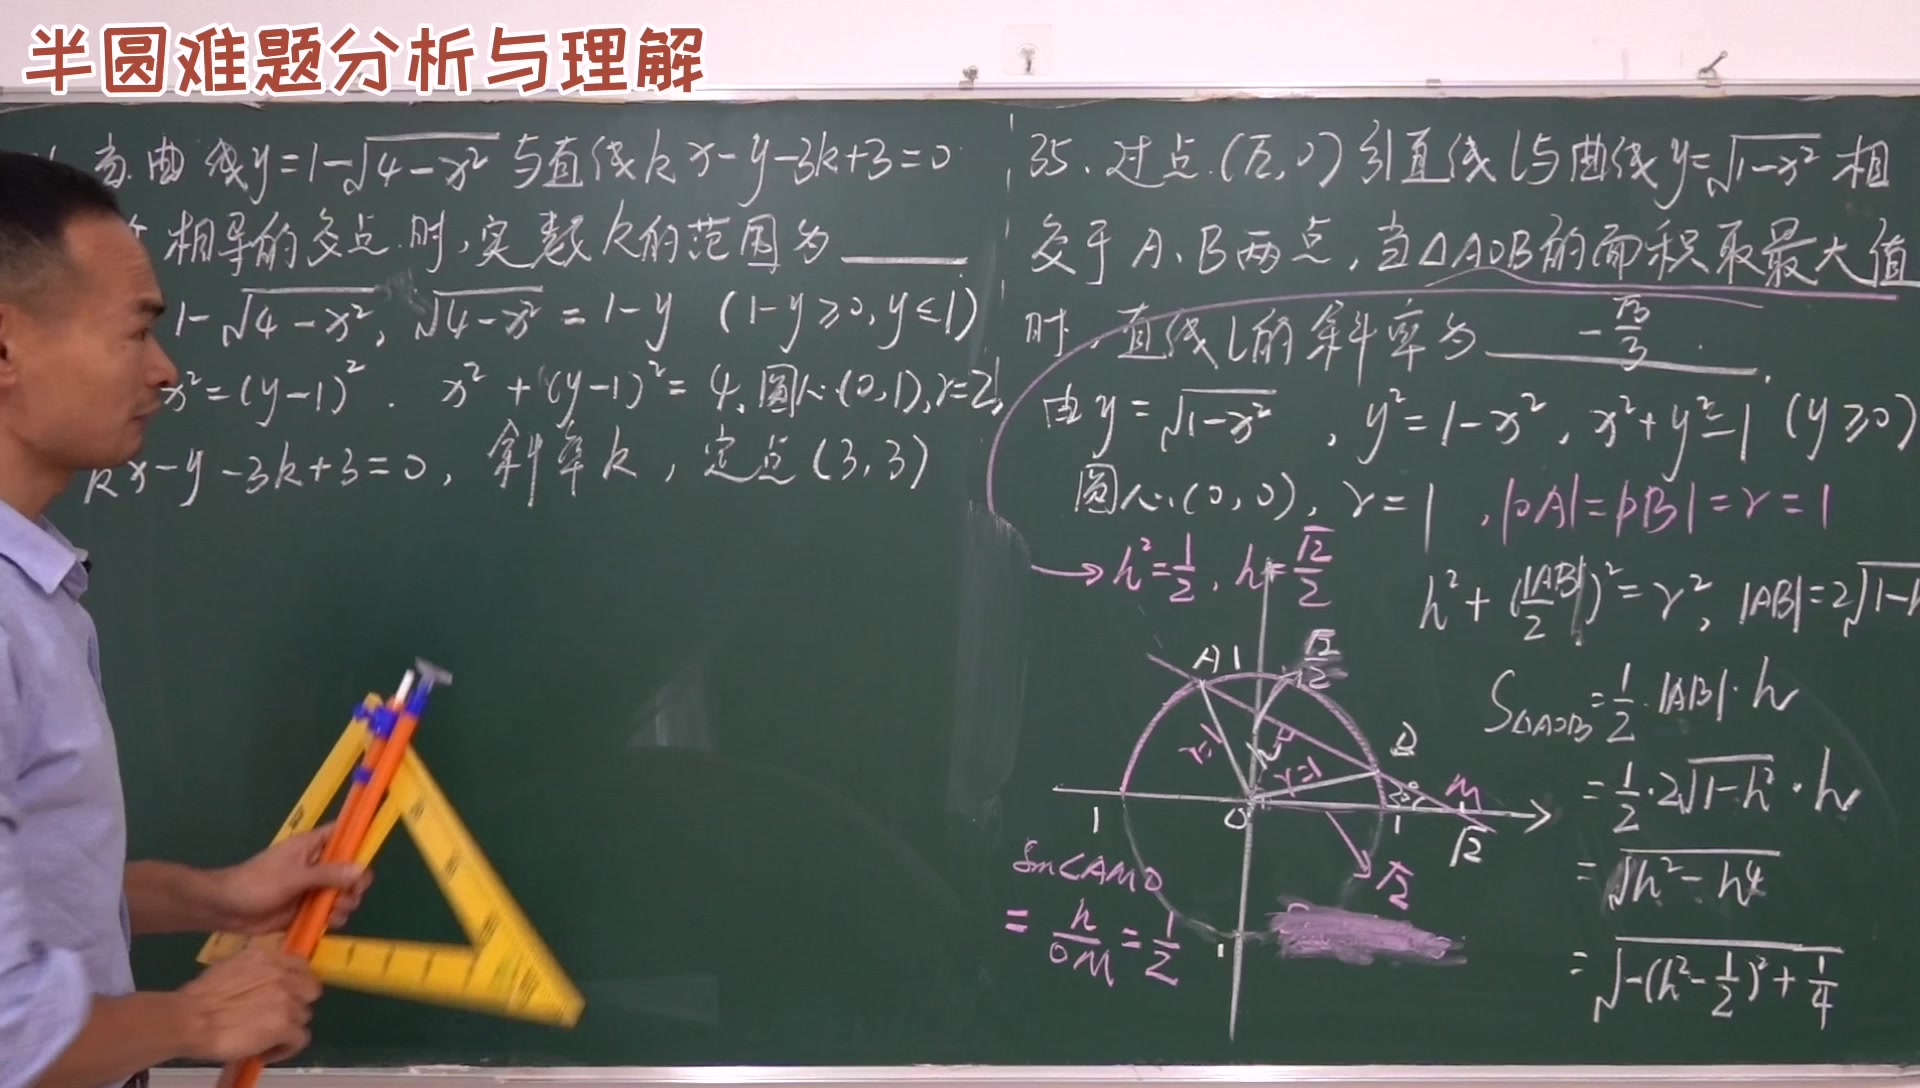 半圆难题分析与理解
当曲线y=1-√(4-x²)与直线kx-y-3k+3=0
相异的交点时,实数k的范围为____
1-√(4-x²), √(4-x²)=1-y (1-y≥0,y≤1)
x²=(y-1)². x²+(y-1)²=4,圆心(0,1),r=2,
kx-y-3k+3=0, 斜率k, 定点(3,3)
35.过点(√2,0)引直线l与曲线y=√(1-x²)相
交于A、B两点,当△AOB的面积取最大值
时,直线l的斜率为 -√3/3 .
由y=√(1-x²), y²=1-x², x²+y²=1 (y≥0)
圆心(0,0), r=1, |OA|=|OB|=r=1
→h²=1/2, h=√2/2
h²+(|AB|/2)²=r², |AB|=2√(1-h
S△AOB=1/2·|AB|·h
=1/2·2√(1-h²)·h
=√(h²-h⁴)
=√(-(h²-1/2)²+1/4)
A 1 √2/2
r=1 h r=1 B
30° M
1 O 1 √2
√2
1
Sin∠AMO
=h/OM=1/2